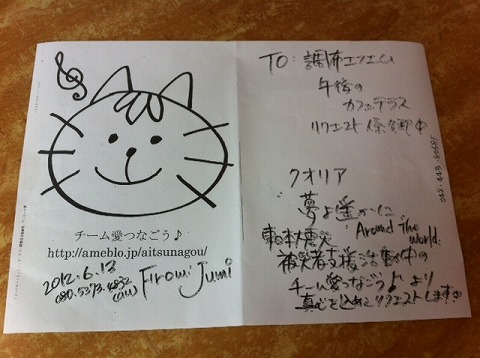 チーム愛つなごう♪
http://ameblo.jp/aitsunagou/
2012.6.13
080.5373.4832
(au)
From: Jumi
TO: 調布エフエム
午後の
カフェテラス
リクエスト係御中
042.443.
クオリア
"夢よ遥かに
Around The World.
東日本大震災
被災者支援活動中の
チーム愛つなごう♪より
真心を込めてリクエストします